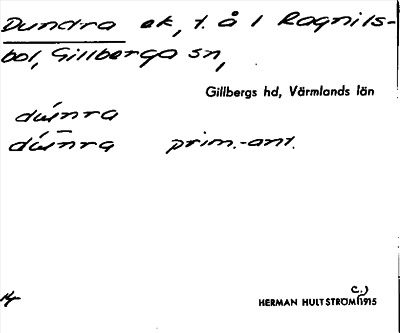 Dundra ek, t. å 1 Ragnils-
bol, Gillberga sn,
Gillbergs hd, Värmlands län
dúnra
dúnra prim.-ant.
HERMAN HULTSTRÖM 1915